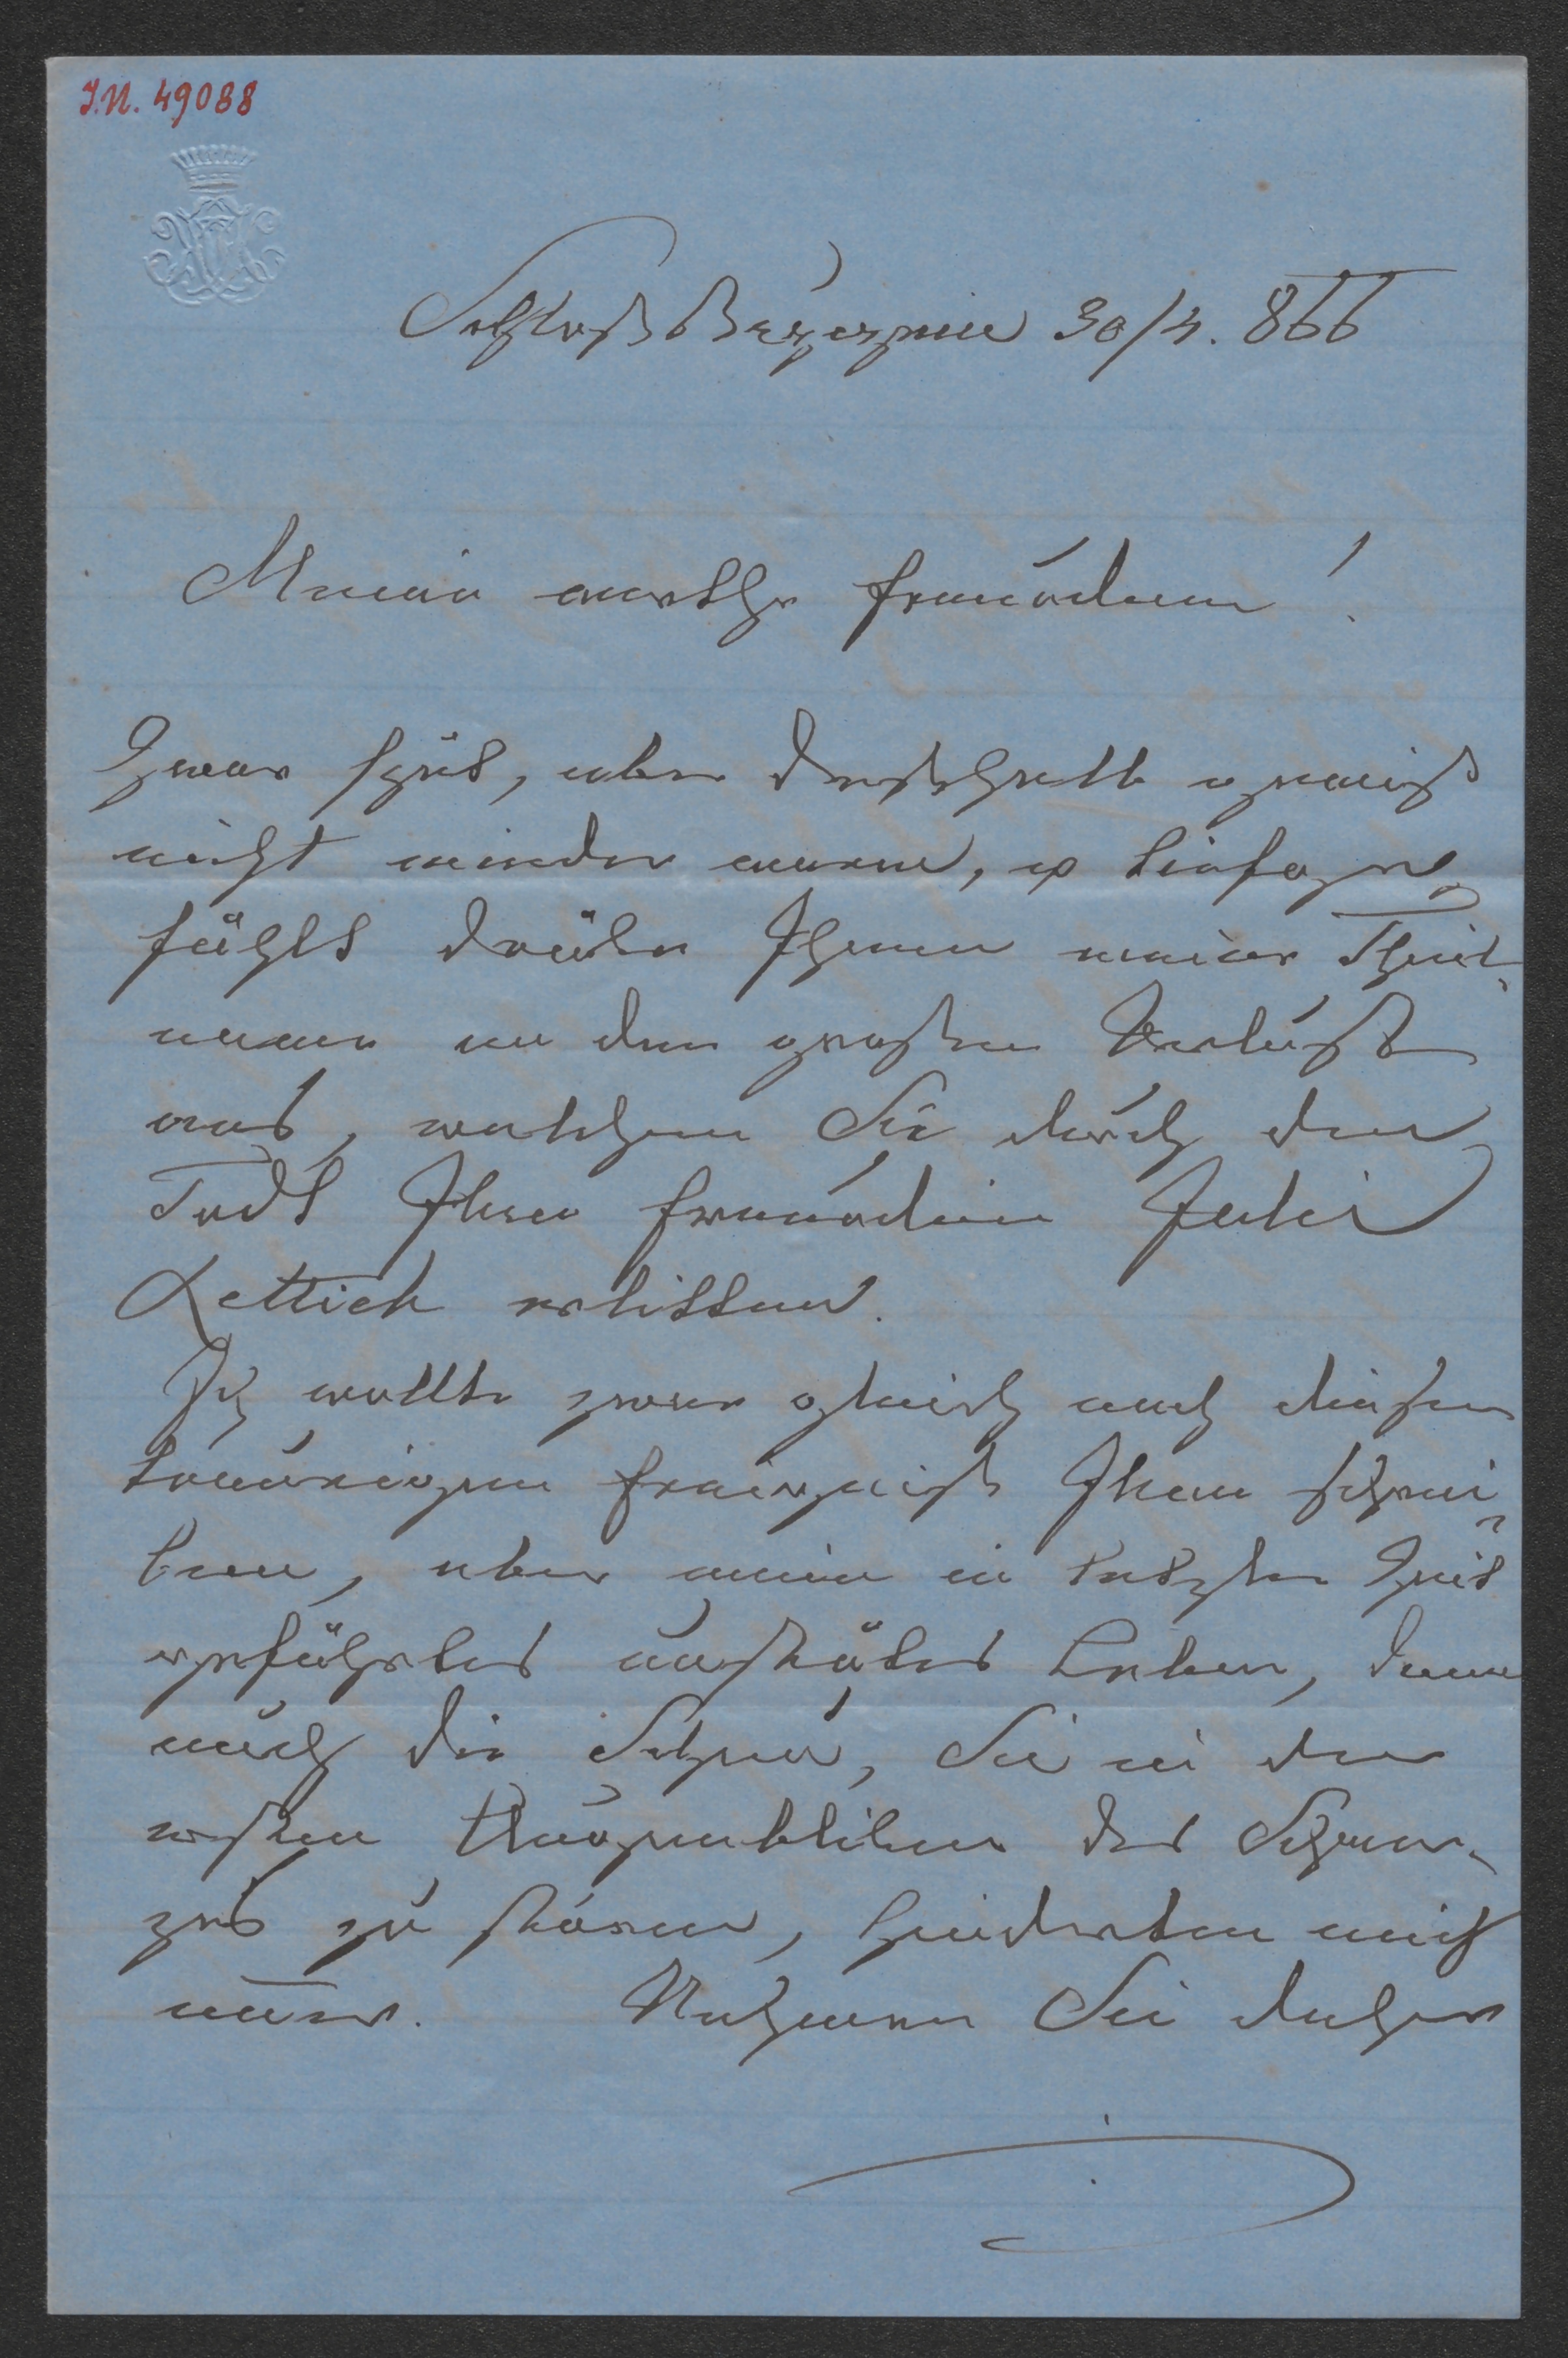 I.N. 49088
Schloß 30/4. 866
Meine werthe Freundinn!
Zwar spät, aber deßhalb gewiß
nicht minder warm, u tiefge-
fühlt drücke Ihnen meine Theil-
name an dem großen Verluste
aus, welchen Sie durch den
Todt Ihrer Freundinn Julie
Rettich erlitten.
Ich wollte zwar gleich nach diesem
traurigen Ereigniße Ihnen schrei-
ben, aber mein in letzter Zeit
geführtes unstätes Leben, dann
auch die Scheu, Sie in den
ersten Augenbliken des Schmer-
zes zu stören, hinderten mich
Nehmen Sie daher